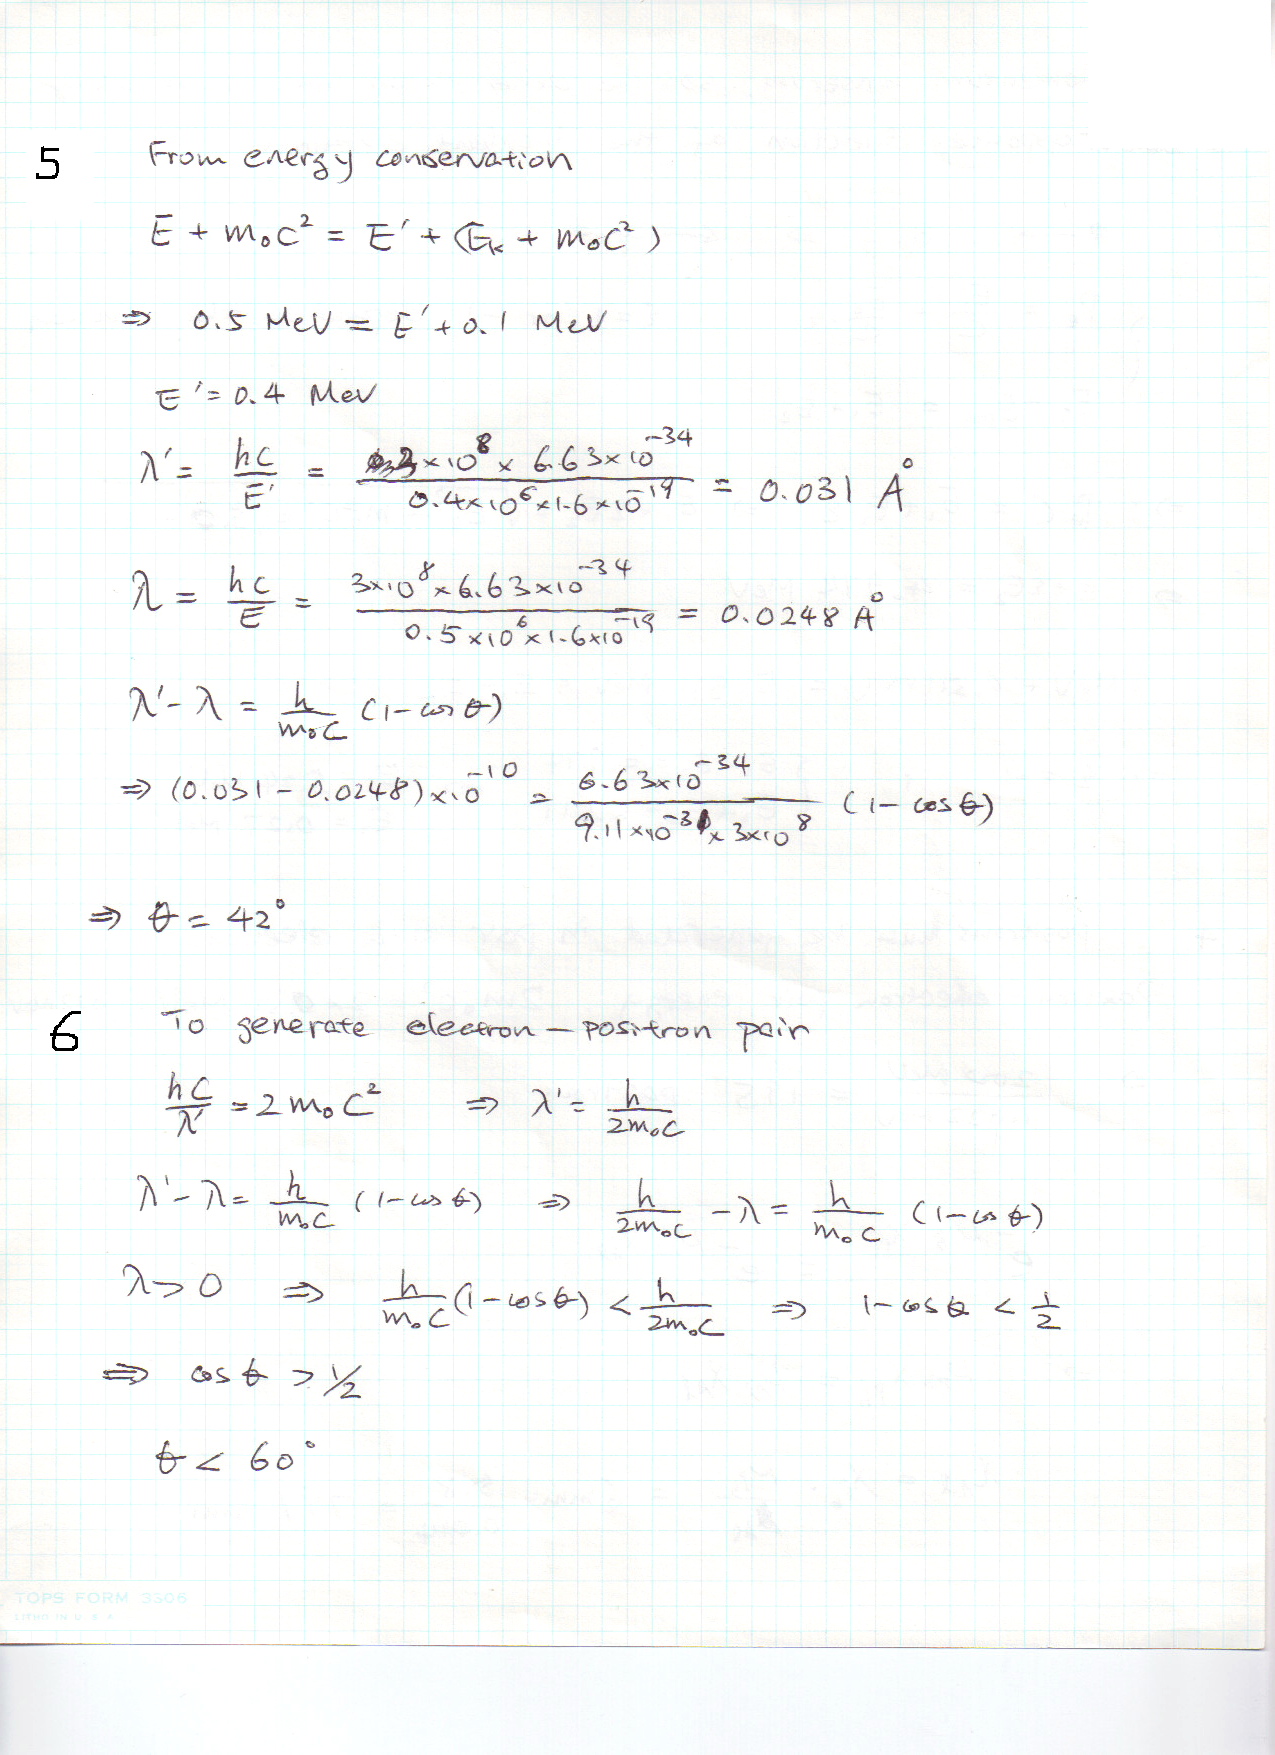 5 From energy conservation
E + m₀c² = E' + (E_k + m₀c²)
⇒ 0.5 MeV = E' + 0.1 MeV
E' = 0.4 MeV
λ' = hc/E' = 3×10⁸ × 6.63×10⁻³⁴ / 0.4×10⁶×1.6×10⁻¹⁹ = 0.031 Å
λ = hc/E = 3×10⁸×6.63×10⁻³⁴ / 0.5×10⁶×1.6×10⁻¹⁹ = 0.0248 Å
λ' - λ = h/m₀c (1 - cos θ)
⇒ (0.031 - 0.0248)×10⁻¹⁰ = 6.63×10⁻³⁴ / 9.11×10⁻³¹×3×10⁸ (1 - cos θ)
⇒ θ = 42°
6 To generate electron - positron pair
hc/λ' = 2m₀c² ⇒ λ' = h/2m₀c
λ' - λ = h/m₀c (1 - cos θ) ⇒ h/2m₀c - λ = h/m₀c (1 - cos θ)
λ > 0 ⇒ h/m₀c (1 - cos θ) < h/2m₀c ⇒ 1 - cos θ < 1/2
⇒ cos θ > 1/2
θ < 60°
TOPS FORM 3306
LITHO IN U. S. A.